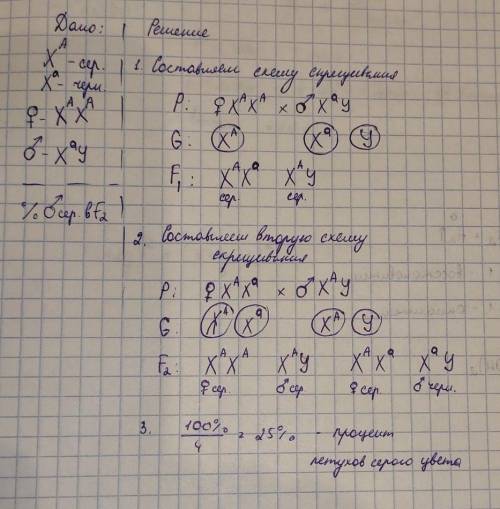 Дано:
X^A - сер.
X^a - черн.
♀ - X^A X^A
♂ - X^a У
% ♂ сер. в F₂
Решение
1. Составляем схему скрещивания
P: ♀ X^A X^A × ♂ X^a У
G: X^A X^a У
F₁: X^A X^a X^A У
сер. сер.
2. Составляем вторую схему
скрещивания
P: ♀ X^A X^a × ♂ X^A У
G: X^A X^a X^A У
F₂: X^A X^A X^A У X^A X^a X^a У
♀ сер. ♂ сер. ♀ сер. ♂ черн.
3. 100%/4 = 25% - процент
петухов серого цвета